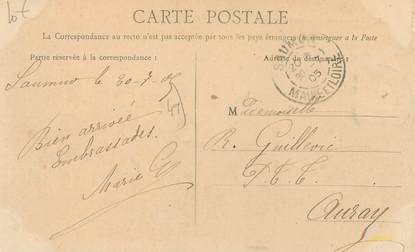 Lot
CARTE POSTALE
La Correspondance au recto n'est pas acceptée par tous les pays étrangers (se renseigner à la Poste
Partie réservée à la correspondance :
Adresse du destinataire :
SAUMUR
05
MAINE-ET-LOIRE
Saumur le 20-7-05
Bien arrivée
Embrassades.
Marie G
Mademoiselle
R. Guillevic
P.T.T.
Auray